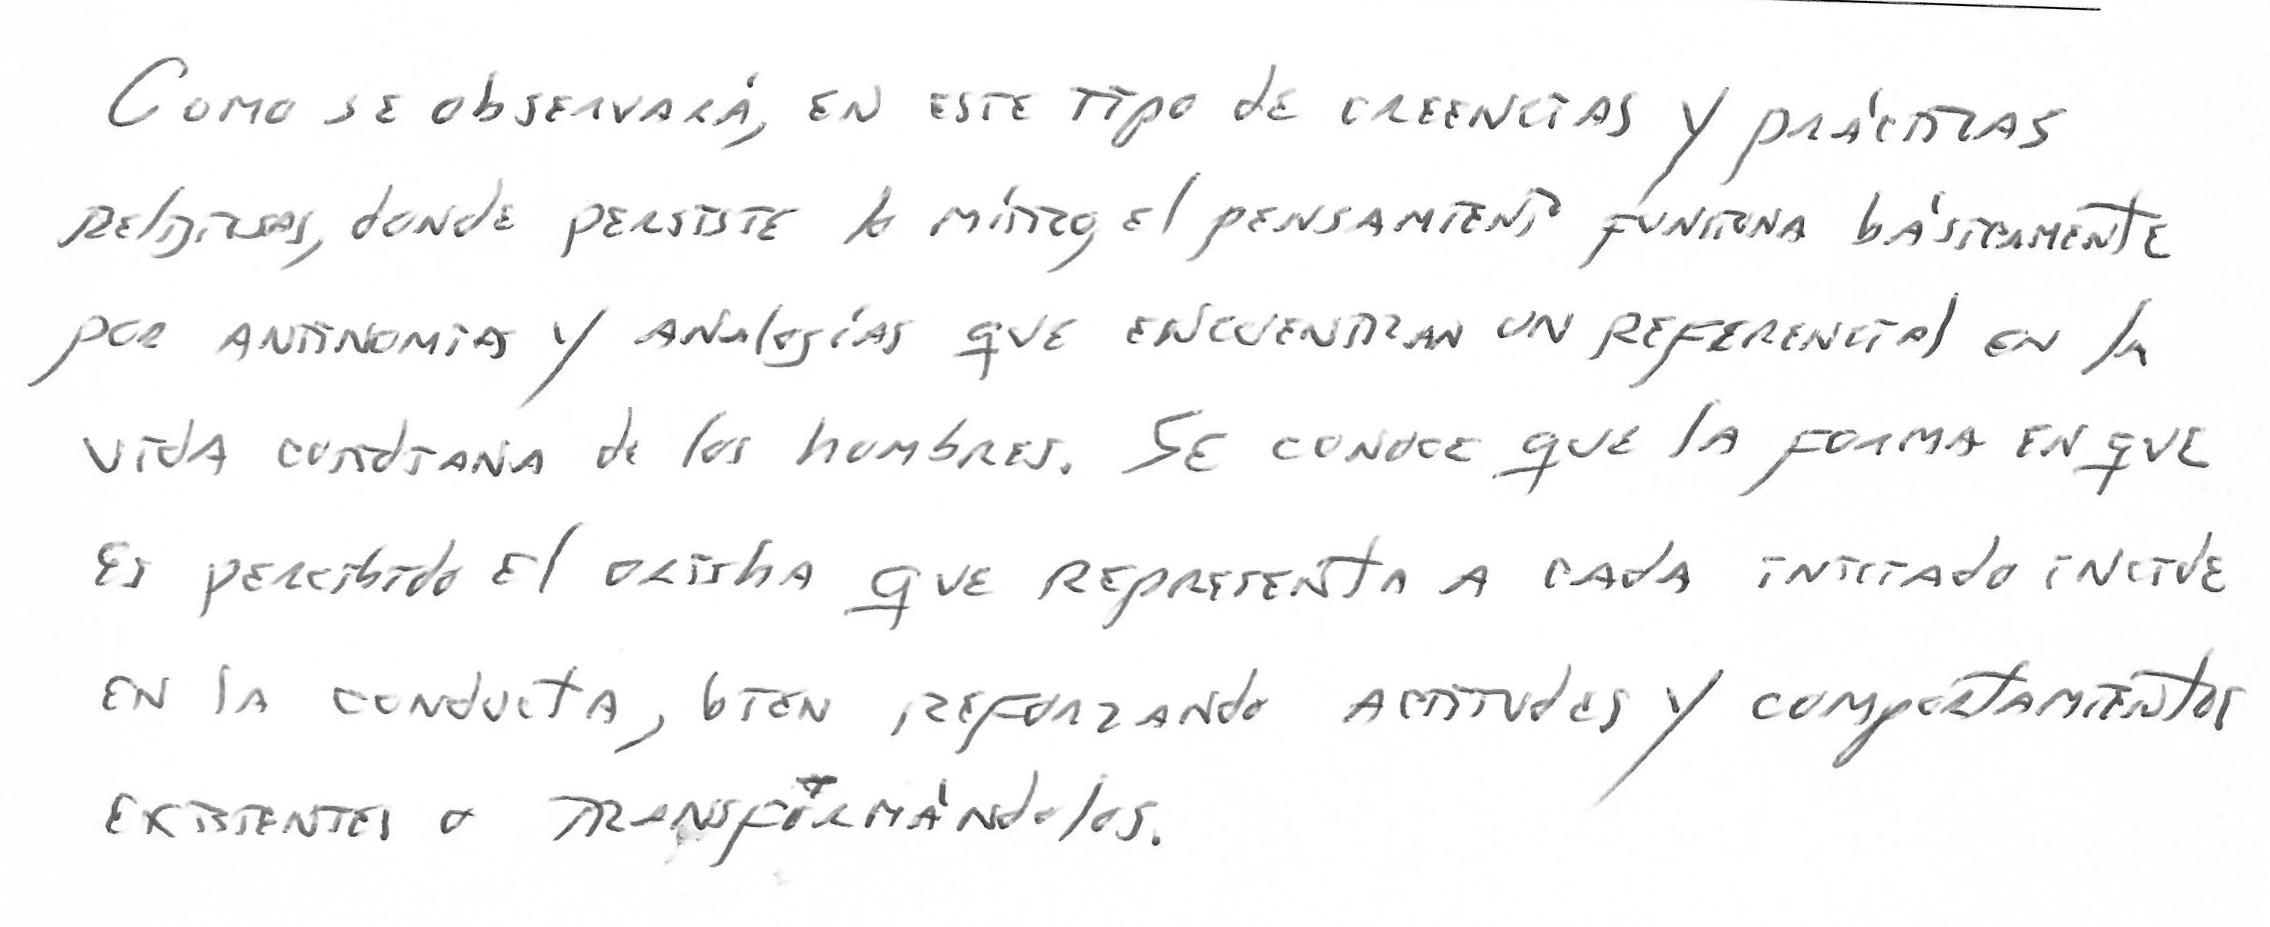 Como se observará, en este tipo de creencias y prácticas
religiosas, donde persiste lo mítico, el pensamiento funciona básicamente
por antinomias y analogías que encuentran un referencial en la
vida cotidiana de los hombres. Se conoce que la forma en que
es percibido el orisha que representa a cada iniciado incide
en la conducta, bien reforzando actitudes y comportamientos
existentes o transformándolos.